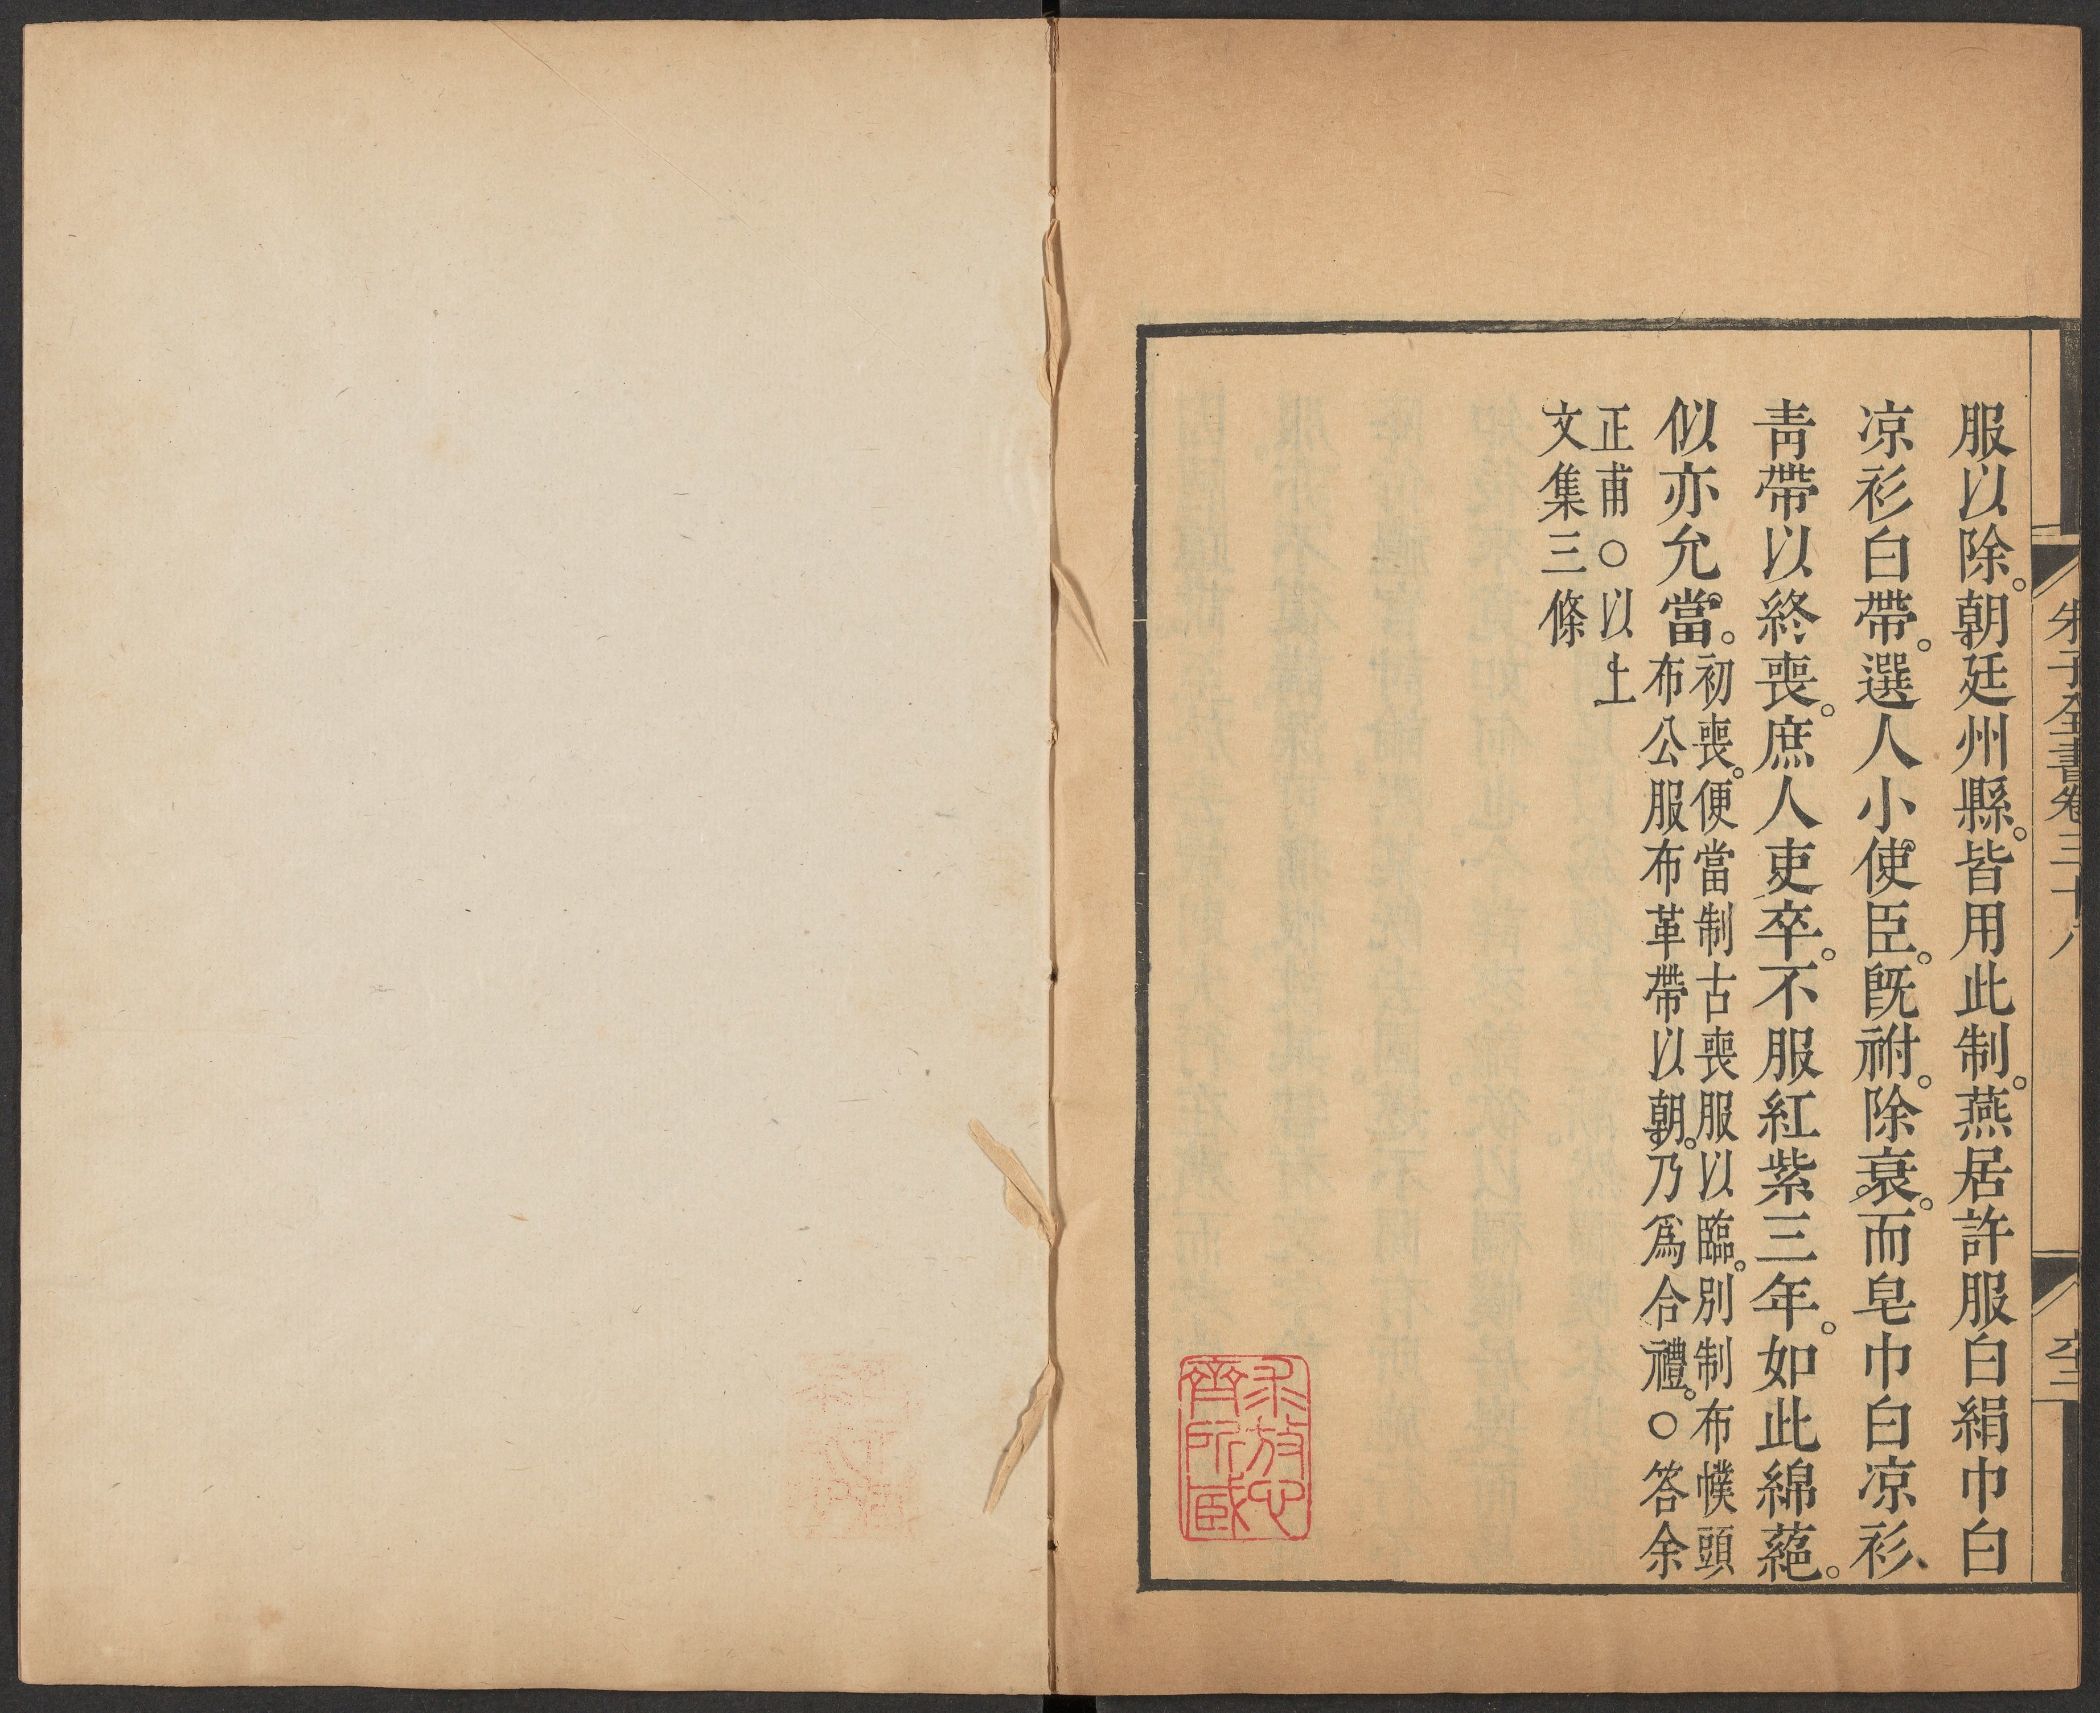 服以除。朝廷州縣。皆用此制。燕居許服白絹巾白
凉衫白帶。選人小使臣。旣祔。除衰。而皂巾白凉衫、
靑帶以終喪。庶人吏卒。不服紅紫三年。如此綿蕝。
似亦允當。
初喪。便當制古喪服以臨。別制布幞頭
布公服布革帶以朝。乃爲合禮。○答余
正甫○以上
文集三條
朱子全書卷三十八